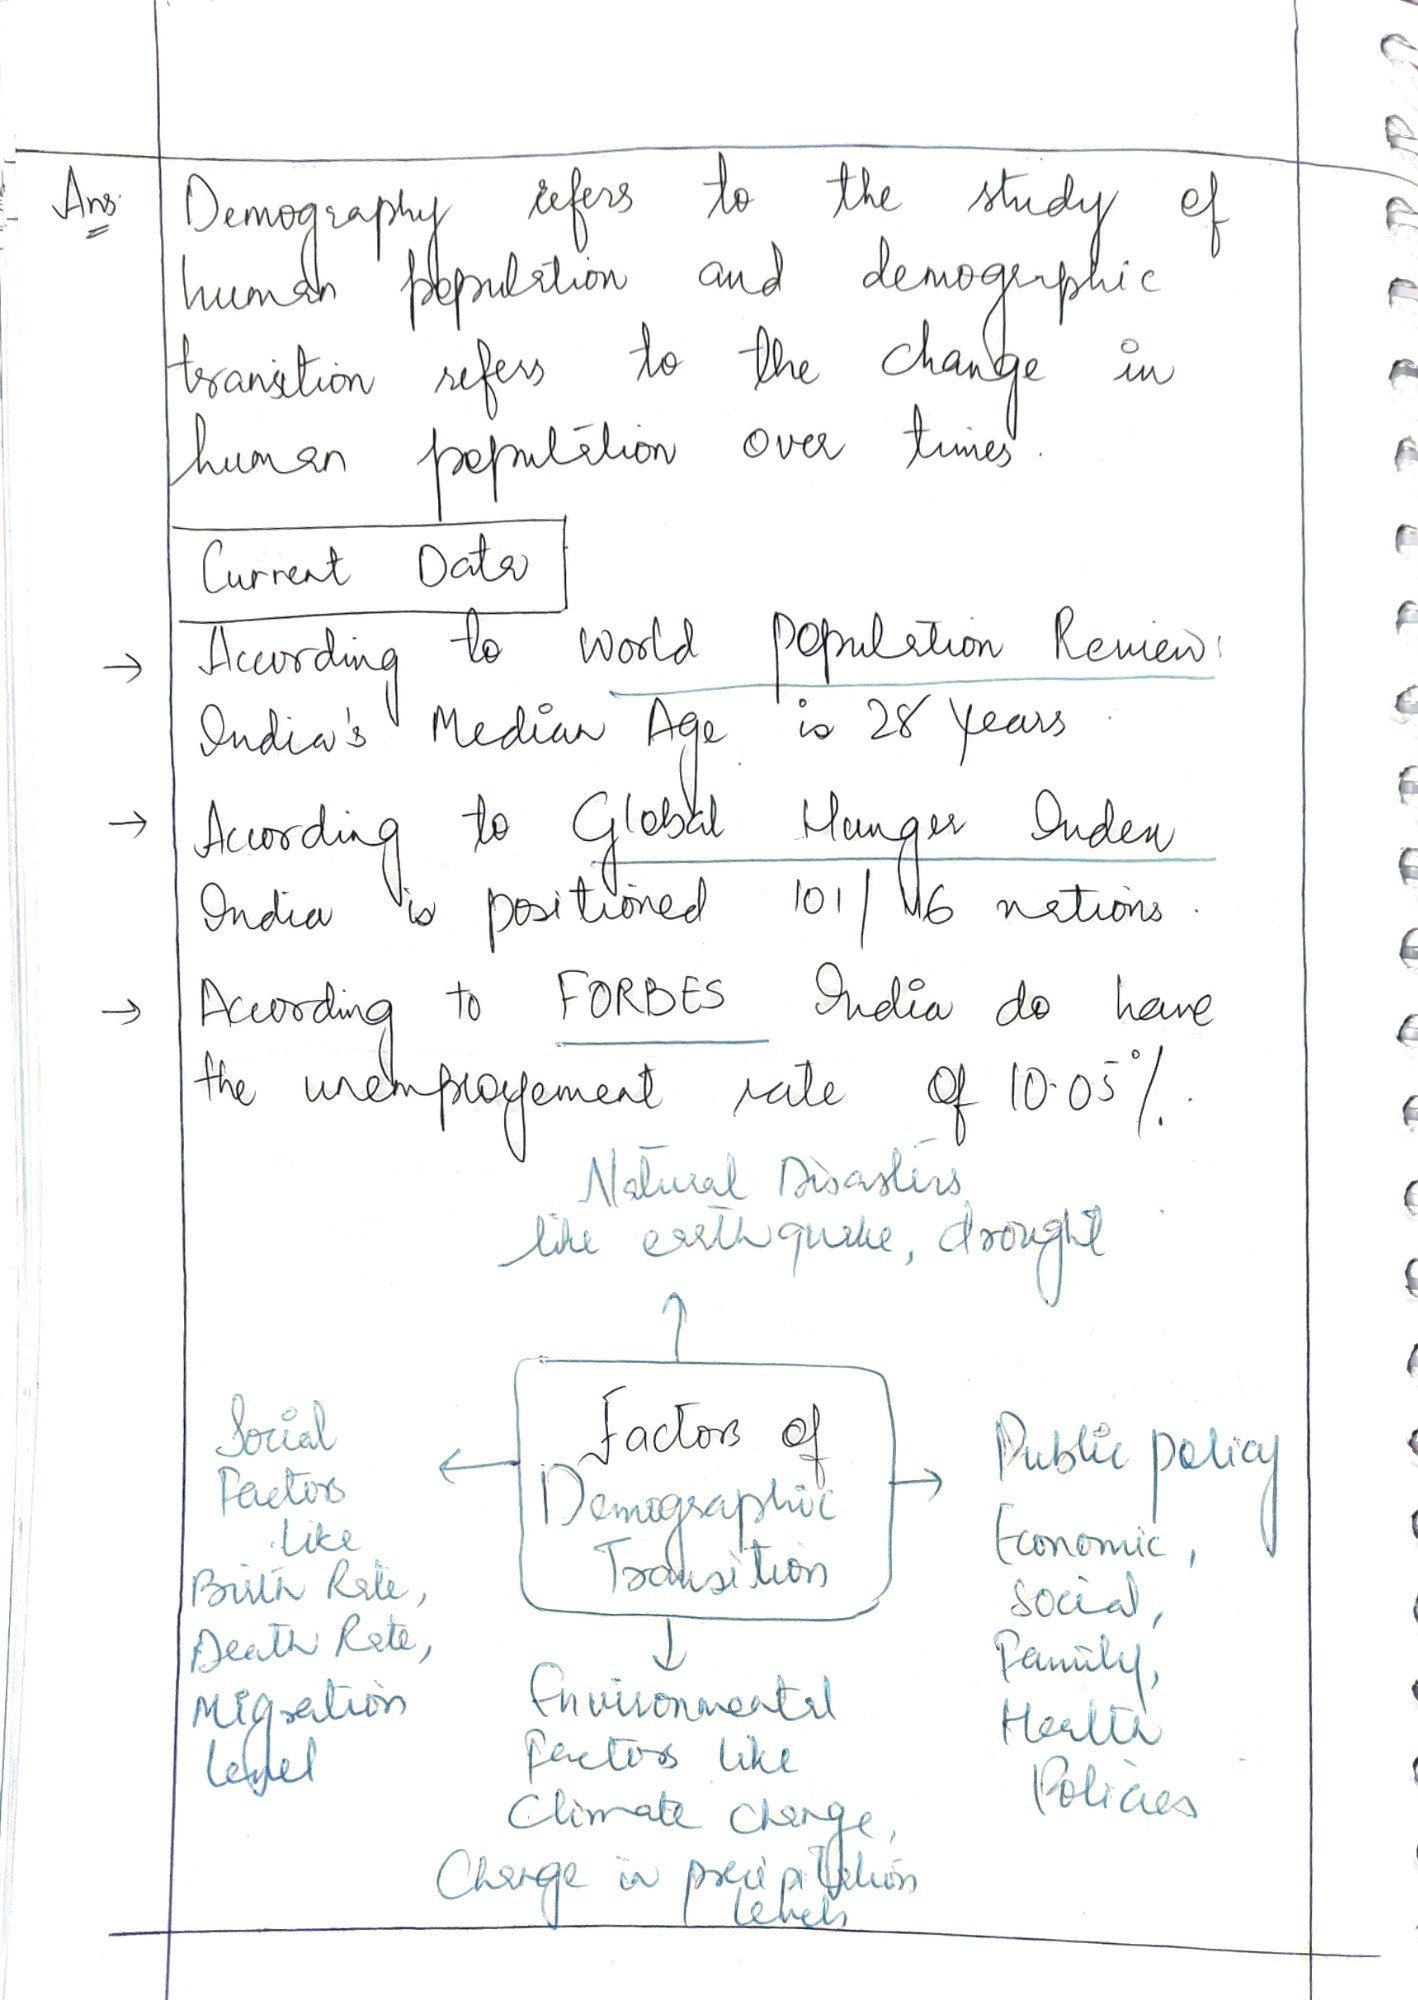 Ans.
Demography refers to the study of
human population and demographic
transition refers to the change in
human population over times.
Current Data
→ According to World Population Review:
India's Median Age is 28 years.
→ According to Global Hunger Index
India is positioned 101/116 nations.
→ According to FORBES India do have
the unemployement rate of 10.05%.
Natural Disasters
like earthquake, drought
Factors of
Demographic
Transition
Social
Factors
like
Birth Rate,
Death Rate,
Migration
Level
Environmental
Factors like
Climate change,
Change in precipitation
levels
Public policy
Economic,
Social,
Family,
Health
Policies